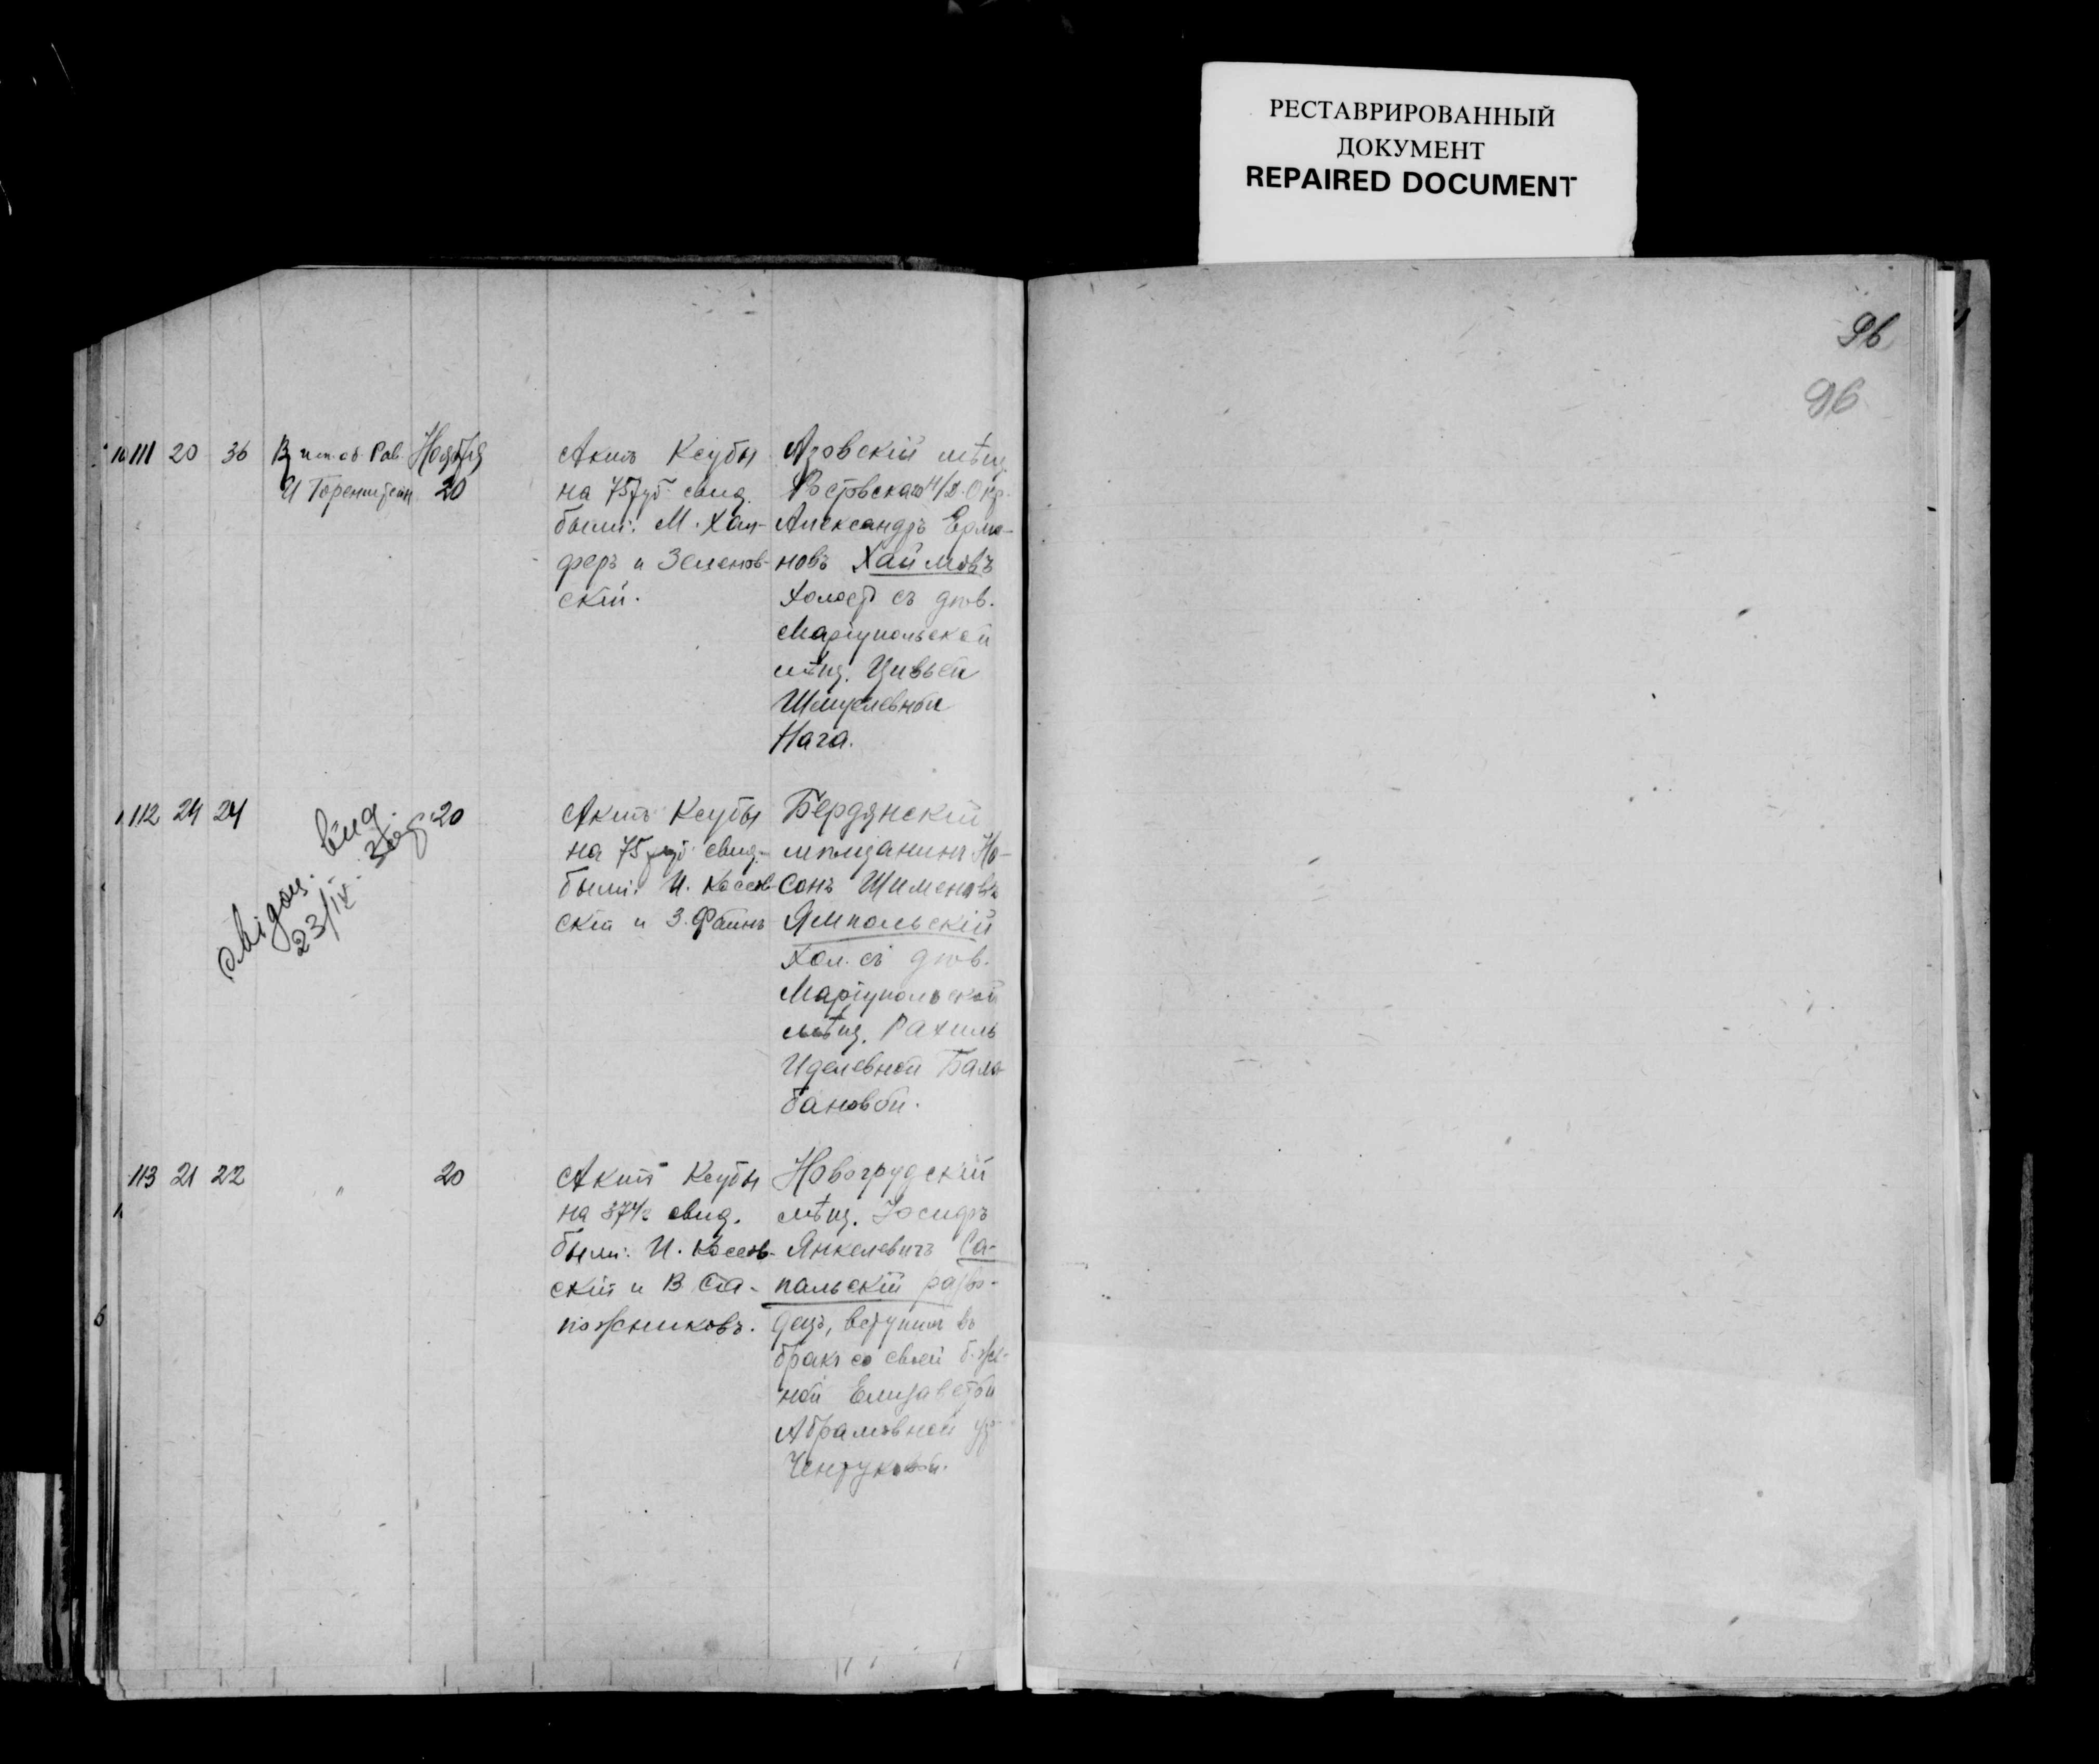 РЕСТАВРИРОВАННЫЙ
ДОКУМЕНТ
REPAIRED DOCUMENT
96
96
111 20 36 В исп. об. Рав. Ноября
И Горенштейн 20
Актъ Ксубы
на 75 руб. свид.
были: М. Хал-
феръ и Зеленов-
скій.
Азовскій мѣщ.
Ростовскаго н/Д. Окр.
Александръ Ерма-
новъ Хаимовъ
холост съ дѣв.
Маріупольской
мѣщ. Цивьей
Шмулевной
Нага.
112 24 24 20
выд.
23/IX
Актъ Ксубы
на 75 руб. свид.
были: И. Косов-
скій и З. Файнъ
Бердянскій
мѣщанинъ Но-
сонъ Шименовъ
Ямпольскій
хол. съ дѣв.
Маріупольской
мѣщ. Рахиль
Иделевной Бала-
бановой.
113 21 22 " 20
Актъ Ксубы
на 37½ свид.
были: И. Косов-
скій и В Са-
пожниковъ.
Новогрудскій
мѣщ. Іосифъ
Янкелевичъ Са-
пальскій разво-
децъ, вступил въ
бракъ со своей б. же-
ной Елизаветой
Абрамовной ур.